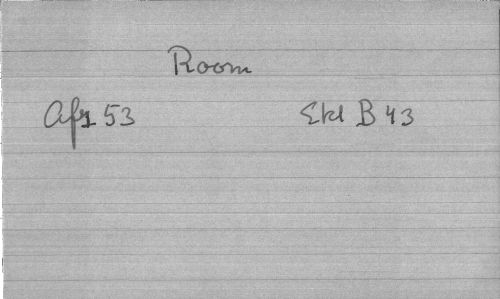 Room
Afr 53 Ekl B 43